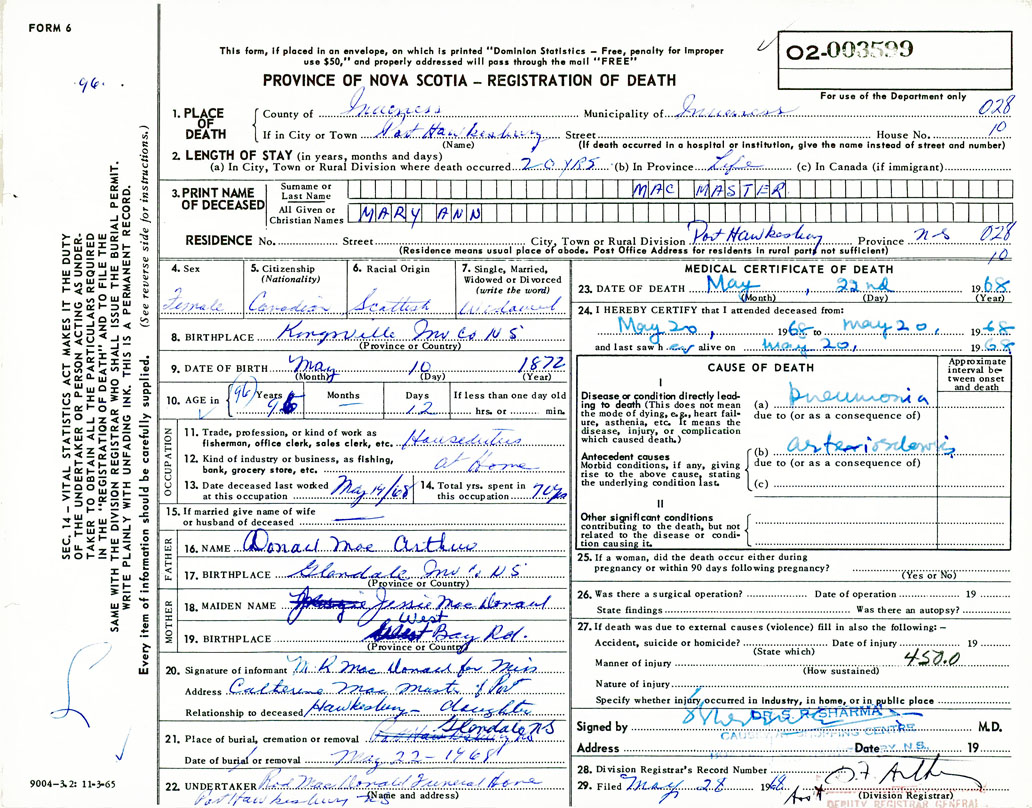 FORM 6
96
This form, if placed in an envelope, on which is printed "Dominion Statistics – Free, penalty for improper
use $50," and properly addressed will pass through the mail "FREE"
PROVINCE OF NOVA SCOTIA – REGISTRATION OF DEATH
02-003599
For use of the Department only
1. PLACE OF DEATH County of Inverness Municipality of Inverness 028
If in City or Town Port Hawkesbury Street House No. 10
(Name) (If death occurred in a hospital or institution, give the name instead of street and number)
2. LENGTH OF STAY (in years, months and days)
(a) In City, Town or Rural Division where death occurred 20 YRS (b) In Province Life (c) In Canada (if immigrant)
3. PRINT NAME OF DECEASED Surname or Last Name MAC MASTER
All Given or Christian Names MARY ANN
RESIDENCE No. Street City, Town or Rural Division Port Hawkesbury Province NS 028
(Residence means usual place of abode. Post Office Address for residents in rural parts not sufficient) 10
4. Sex 5. Citizenship (Nationality) 6. Racial Origin 7. Single, Married, Widowed or Divorced (write the word)
Female Canadian Scottish Widowed
8. BIRTHPLACE Kingsville Inv Co NS
(Province or Country)
9. DATE OF BIRTH May 10 1872
(Month) (Day) (Year)
10. AGE in (96) Years Months Days If less than one day old
96 12 hrs. or min.
OCCUPATION
11. Trade, profession, or kind of work as
fisherman, office clerk, sales clerk, etc. Houseduties
12. Kind of industry or business, as fishing,
bank, grocery store, etc. At Home
13. Date deceased last worked at this occupation May 19/68 14. Total yrs. spent in this occupation 70 yrs
15. If married give name of wife
or husband of deceased
FATHER
16. NAME Donald Mac Arthur
17. BIRTHPLACE Glendale Inv Co NS
(Province or Country)
MOTHER
18. MAIDEN NAME Jessie MacDonald
19. BIRTHPLACE West Bay Rd.
(Province or Country)
20. Signature of informant M R MacDonald for Miss
Address Catherine MacMaster Port
Relationship to deceased Hawkesbury – daughter
21. Place of burial, cremation or removal Glendale NS
Date of burial or removal May 22 – 1968
22. UNDERTAKER Rod MacDonald Funeral Home
(Name and address) Port Hawkesbury NS
MEDICAL CERTIFICATE OF DEATH
23. DATE OF DEATH May, 22nd 1968
(Month) (Day) (Year)
24. I HEREBY CERTIFY that I attended deceased from:
May 20, 1968 to May 20, 1968
and last saw her alive on May 20, 1968
CAUSE OF DEATH
Approximate interval between onset and death
I
Disease or condition directly leading to death (This does not
mean the mode of dying, e.g., heart failure, asthenia, etc. It means the
disease, injury, or complication
which caused death.)
(a) pneumonia
due to (or as a consequence of)
Antecedent causes
Morbid conditions, if any, giving
rise to the above cause, stating
the underlying condition last.
(b) arteriosclerosis
due to (or as a consequence of)
(c)
II
Other significant conditions
contributing to the death, but not
related to the disease or condition causing it.
25. If a woman, did the death occur either during
pregnancy or within 90 days following pregnancy?
(Yes or No)
26. Was there a surgical operation? Date of operation 19
State findings Was there an autopsy?
27. If death was due to external causes (violence) fill in also the following: –
Accident, suicide or homicide? Date of injury 19
(State which)
Manner of injury 450.0
(How sustained)
Nature of injury
Specify whether injury occurred in Industry, in home, or in public place
Signed by DR. S. R. SHARMA M.D.
CAUSEWAY SHOPPING CENTRE
Address Date N.S. 19
28. Division Registrar's Record Number
29. Filed May 28 1968
(Division Registrar)
DEPUTY REGISTRAR GENERAL
SEC. 14 – VITAL STATISTICS ACT MAKES IT THE DUTY
OF THE UNDERTAKER OR PERSON ACTING AS UNDER-
TAKER TO OBTAIN ALL THE PARTICULARS REQUIRED
IN THE "REGISTRATION OF DEATH" AND TO FILE THE
SAME WITH THE DIVISION REGISTRAR WHO SHALL ISSUE THE BURIAL PERMIT.
WRITE PLAINLY WITH UNFADING INK. THIS IS A PERMANENT RECORD.
Every item of information should be carefully supplied. (See reverse side for instructions.)
9004-3.2: 11-3-65